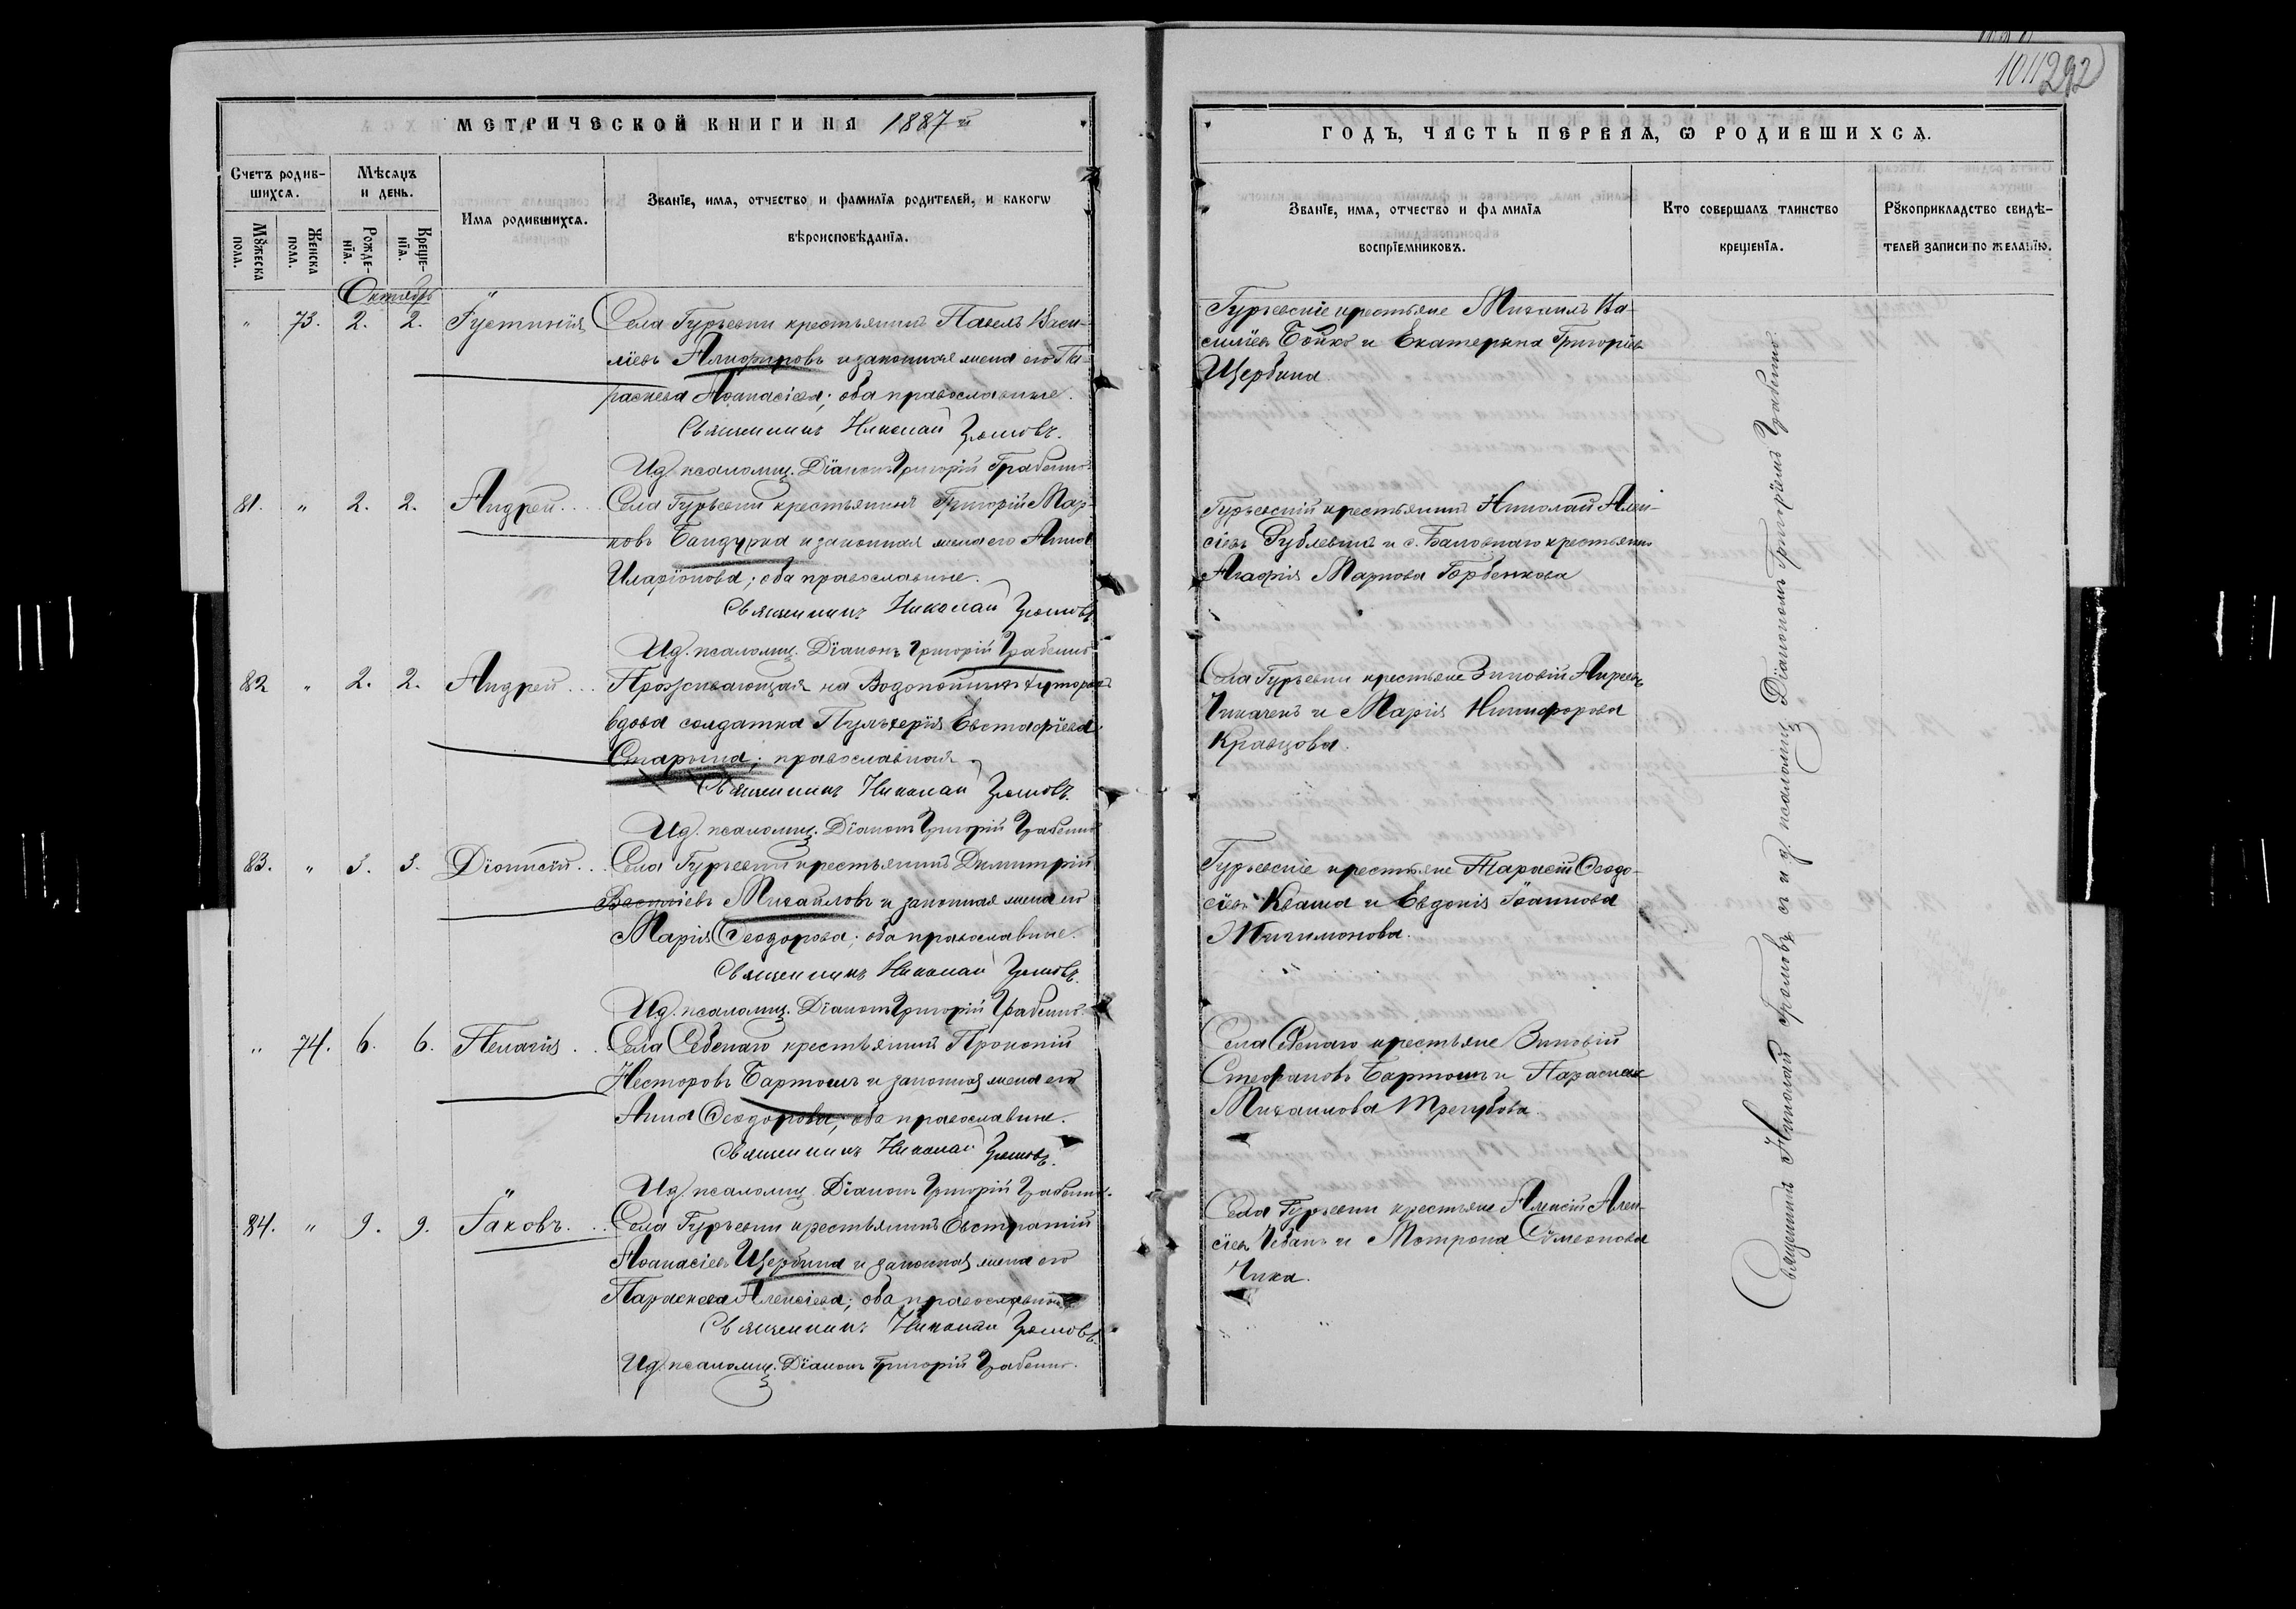 1011 292
МЕТРИЧЕСКОЙ КНИГИ НА 1887 й
ГОДЪ, ЧАСТЬ ПЕРВАЯ, Ѡ РОДИВШИХСѦ.
Счетъ родив-
шихсѧ.
Мѣсяцъ
и день.
Мꙋжеска
пола.
Женска
пола.
Рожде-
нїѧ.
Креще-
нїѧ.
Имѧ родившихсѧ.
Званїе, имѧ, отчество и фамилїѧ родителей, и какогѡ
вѣроисповѣданїѧ.
Званїе, имѧ, отчество и фамилїѧ
воспрїемниковъ.
Кто совершалъ таинство
крещенїѧ.
Рꙋкоприкладство свидѣ-
телей записи по желанїю.
Октябрь
" 73. 2. 2. Іустинія
Села Гурьевки крестьянинъ Павелъ Васи-
ліевъ Алиферовъ и законная жена его Па-
раскева Аѳанасіева; оба православные.
Священникъ Николай Громовъ.
Ид. псаломщ. Діаконъ Григорій Грабенко
Гурьевскіе крестьяне Михаилъ Ва-
силіевъ Бойко и Екатерина Григоріев
Щербина
81. " 2. 2. Андрей...
Села Гурьевки крестьянинъ Григорій Мар-
ковъ Бандурка и законная жена его Анна
Иларіонова; оба православные.
Священникъ Николай Громовъ.
Ид. псаломщ. Діаконъ Григорій Грабенко
Гурьевскій крестьянинъ Николай Алек-
сіевъ Рублевскій и с. Баловнаго крестьянка
Агафія Маркова Горбенкова
82 " 2. 2. Андрей...
Проживающая на Водопойныхъ хуторахъ
вдова солдатка Пульхерія Евстафіева
Старыша; православная
Священникъ Николай Громовъ.
Ид. псаломщ. Діаконъ Григорій Грабенко
Села Гурьевки крестьяне Зиновій Андреевъ
Чикаченъ и Марія Никифорова
Кравцова.
83. " 3. 3. Діонисій...
Села Гурьевки крестьянинъ Димитрій
Василіевъ Михайловъ и законная жена его
Марія Ѳеодорова; оба православные.
Священникъ Николай Громовъ.
Ид. псаломщ. Діаконъ Григорій Грабенко
Гурьевскіе крестьяне Тарасій Ѳеодо-
сіевъ Кваша и Евдокія Іоаннова
" 74. 6. 6. Пелагія..
Села Себенаго крестьянинъ Прокопій
Несторовъ Бартошъ и законная жена его
Анна Ѳеодорова; оба православные.
Священникъ Николай Громовъ.
Ид. псаломщ. Діаконъ Григорій Грабенко.
Села Себенаго крестьяне Зиновій
Стефановъ Бартошъ и Параскева
Михаилова Трегубова.
84. " 9. 9. Іаковъ...
Села Гурьевки крестьянинъ Евстратій
Аѳанасіевъ Щербина и законная жена его
Параскева Алексіева; оба православные
Священникъ Николай Громовъ.
Ид. псаломщ. Діаконъ Григорій Грабенко.
Села Гурьевки крестьяне Алексій Алек-
сіевъ Чебанъ и Мотрона Сѵмеонова
Чика.
Священникъ Николай Громовъ съ и. д. псаломщ. Діакономъ Григоріемъ Грабенко.